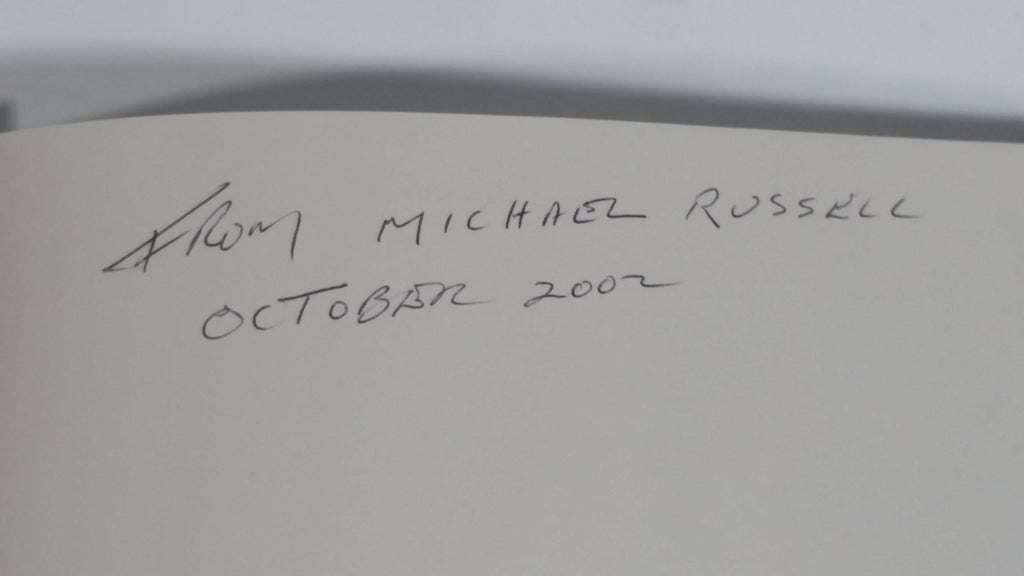 FROM MICHAEL RUSSELL
OCTOBER 2002